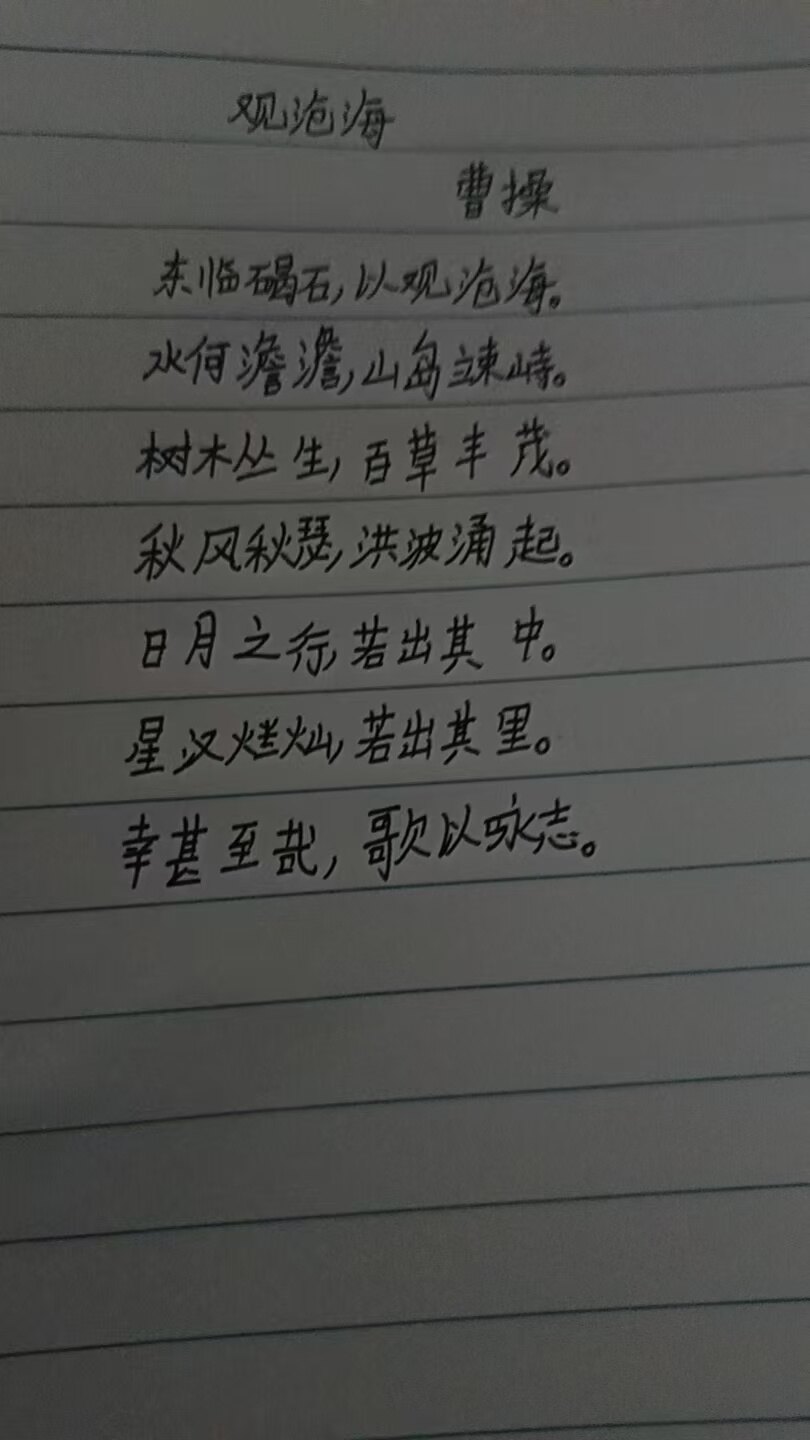 观沧海
曹操
东临碣石,以观沧海。
水何澹澹,山岛竦峙。
树木丛生,百草丰茂。
秋风秋瑟,洪波涌起。
日月之行,若出其中。
星汉烂灿,若出其里。
幸甚至哉,歌以咏志。